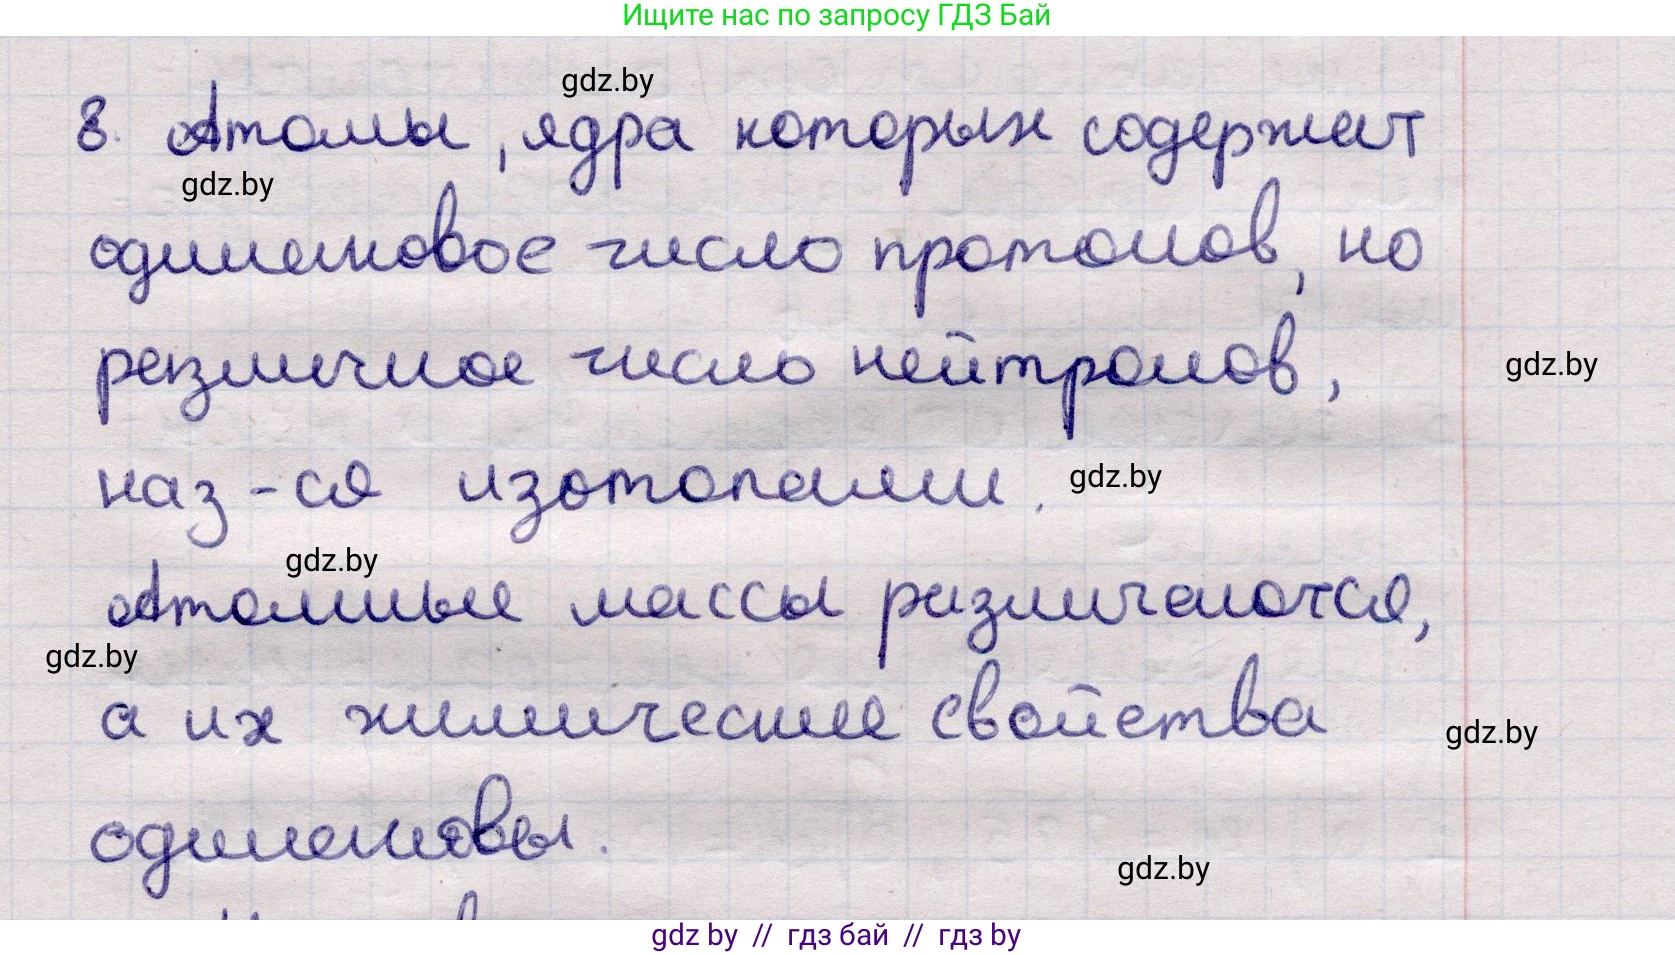 Ищите нас по запросу ГДЗ Бай
gdz.by
8. Атомы, ядра которых содержат
gdz.by
одинаковое число протонов, но
различное число нейтронов,
gdz.by
наз-ся изотопами.
gdz.by
gdz.by
Атомные массы различаются,
gdz.by
а их химические свойства
gdz.by
одинаковы.
gdz.by
gdz by // гдз бай // гдз by